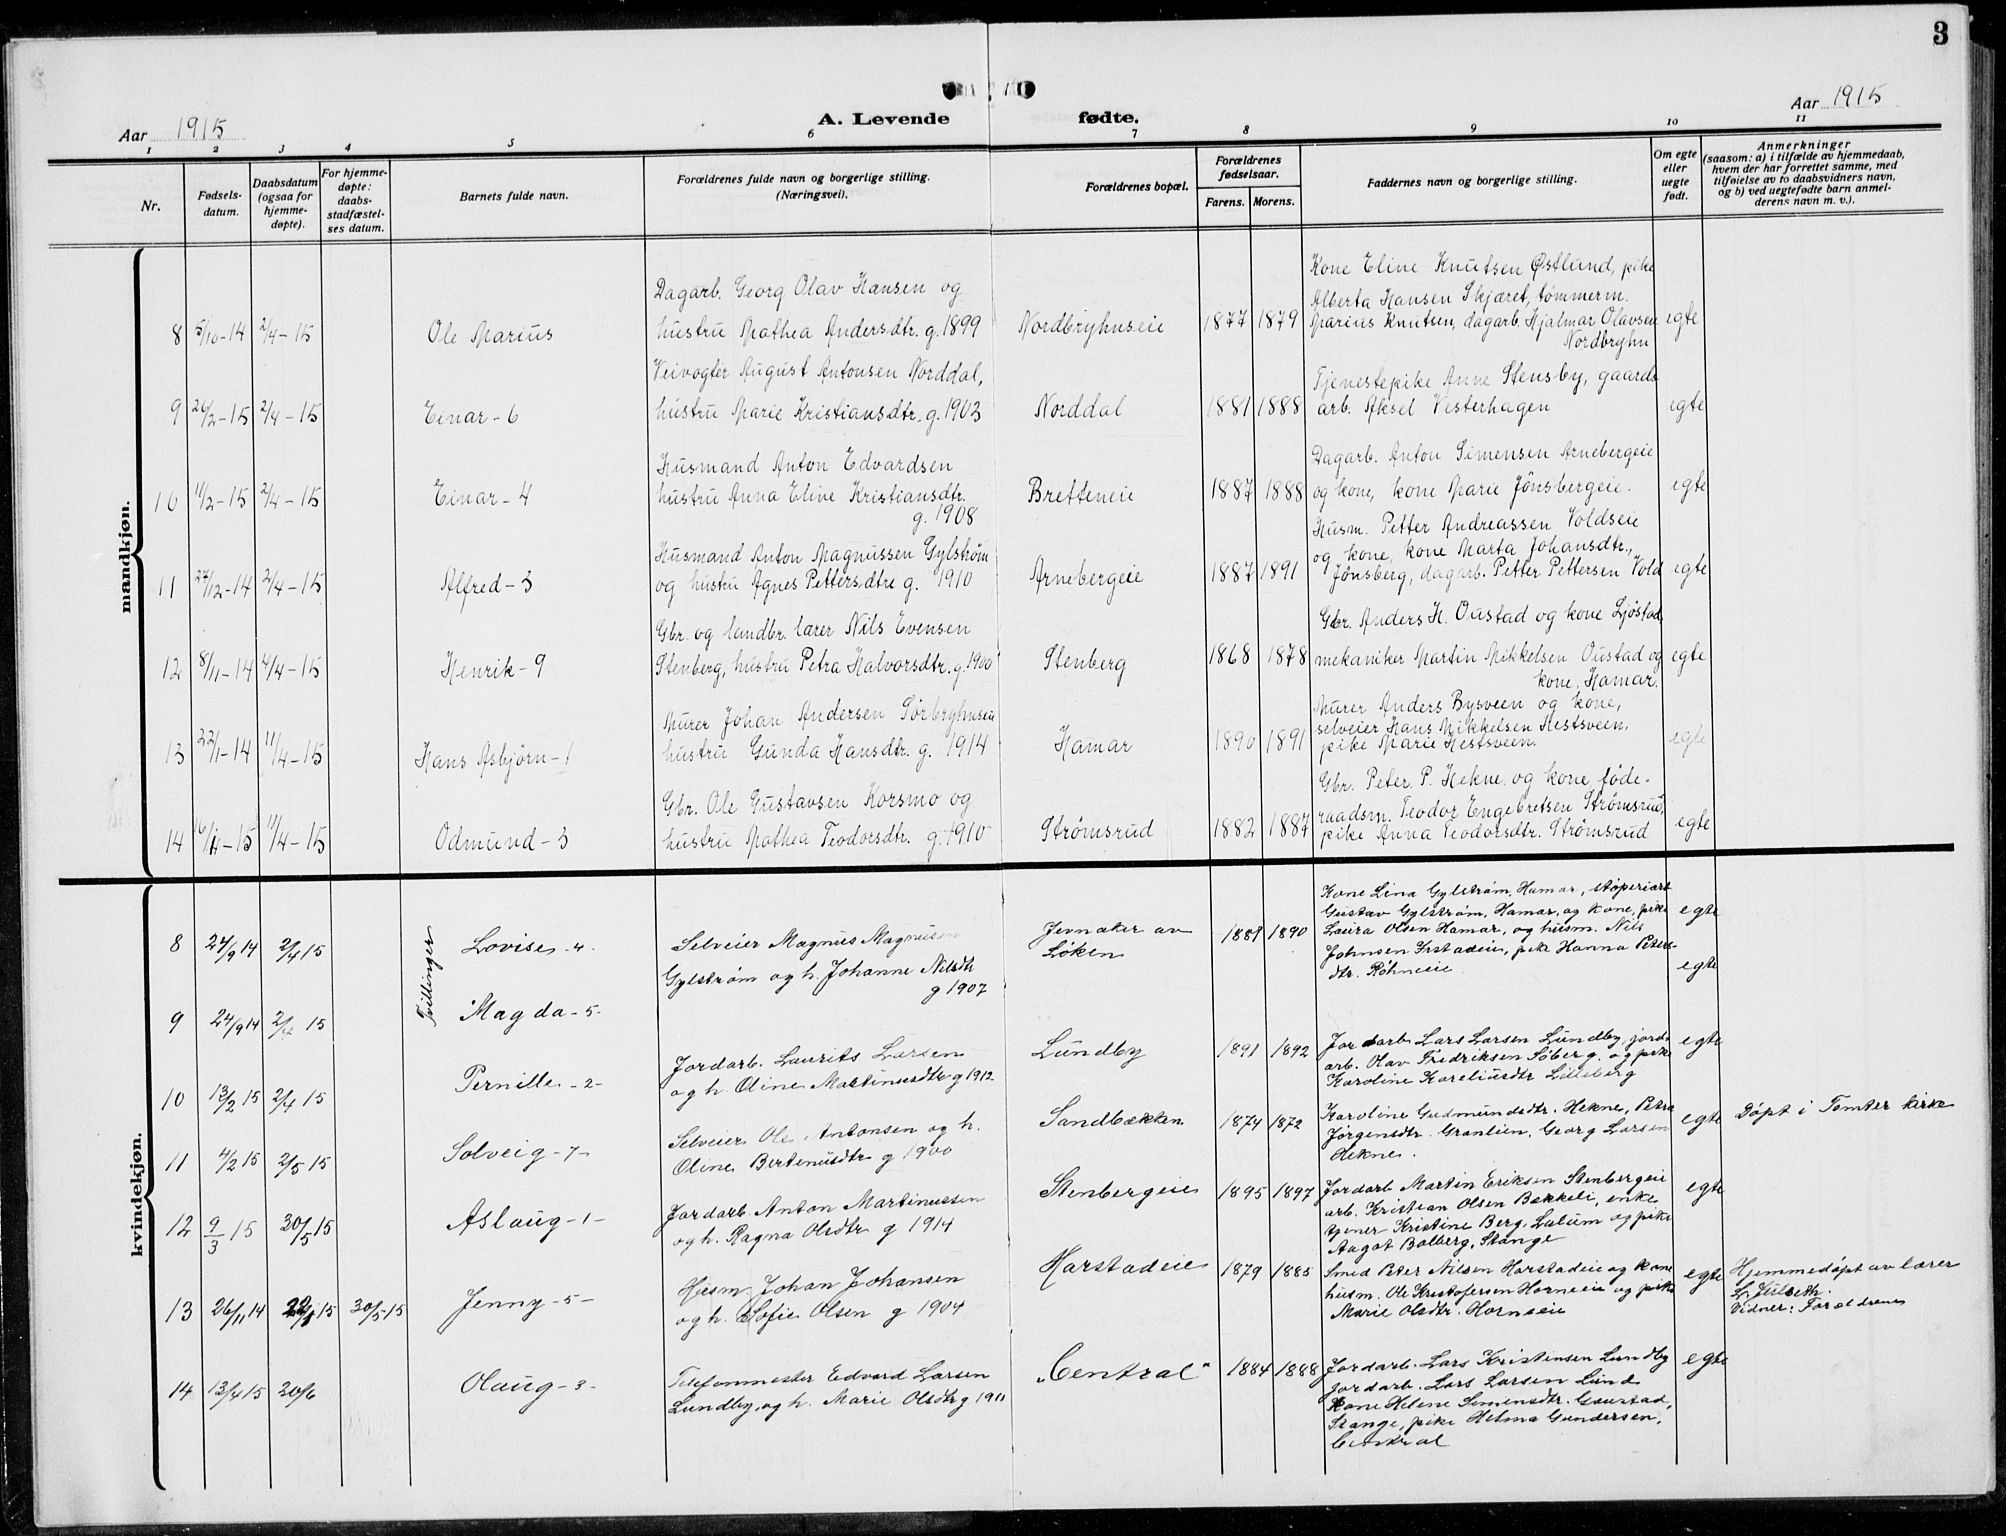 3
Aar 1915
A. Levende fødte.
Aar 1915
1 2 3 4 5 6 7 8 9 10 11
Nr.
Fødsels-
datum.
Daabsdatum
(ogsaa for
hjemme-
døpte).
For hjemme-
døpte:
daabs-
stadfæstel-
ses datum.
Barnets fulde navn.
Forældrenes fulde navn og borgerlige stilling.
(Næringsvei).
Forældrenes bopæl.
Forældrenes
fødselsaar.
Farens. Morens.
Faddernes navn og borgerlige stilling.
Om egte
eller
uegte
født.
Anmerkninger
(saasom: a) i tilfælde av hjemmedaab,
hvem der har forrettet samme, med
tilføielse av to daabsvidners navn,
og b) ved uegtefødte barn anmel-
derens navn m. v.).
mandkjøn.
8 5/10-14 2/4-15 Ole Marius
Dagarb. Georg Olav Hansen og
hustru Mathea Andersdtr. g. 1899
Nordbryhuseie 1877 1879
Kone Eline Knutsen Østlund, pike
Alberta Hansen Skjæret, tømmerm.
Marius Knutsen, dagarb. Hjalmar Olavsen
Nordbryhn
egte
9 24/2-15 2/4-15 Einar - 6
Veivogter August Antonsen Norddal,
hustru Marie Kristiansdtr. g. 1903
Norddal 1881 1888
Tjenestepike Anne Stensby, gaards
arb. Aksel Vesterhagen
egte
10 11/2-15 2/4-15 Einar - 4
Husmand Anton Edvardsen
hustru Anna Eline Kristiansdtr.
g. 1908
Bretteneie 1887 1888
Dagarb. Anton Simensen Arnebergeie
og kone, kone Marie Jønsbergeie.
egte
11 27/12-14 2/4-15 Alfred - 3
Husmand Anton Magnussen Gylstrøm
og hustru Agnes Pettersdtre g. 1910
Arnebergeie 1887 1891
Husm. Petter Andreassen Voldseie
og kone, kone Marta Johansdtr.,
Jønsberg, dagarb. Petter Pettersen Vold
egte
12 8/11-14 4/4-15 Henrik - 9
Gbr. og landbr. lærer Nils Evensen
Stenberg, hustru Petra Halvorsdtr. g. 1900
Stenberg 1868 1878
Gbr. Anders H. Oustad og kone Ljøstad,
mekaniker Martin Mikkelsen Oustad og
kone, Hamar.
egte
13 22/1-14 11/4-15 Hans Asbjørn - 1
Murer Johan Andersen Sørbryhuseie
hustru Gunda Hansdtr. g. 1914
Hamar 1890 1891
Murer Anders Bysveen og kone,
selveier Hans Mikkelsen Hestsveen,
pike Marie Hestsveen.
egte
14 16/1-15 11/4-15 Odmund - 3
Gbr. Ole Gustavsen Korsmo og
hustru Mathea Teodorsdtr. g. 1910
Strømsrud 1882 1887
Gbr. Peter P. Hekne og kone, føde-
raadsm. Teodor Engebretsen Strømsrud,
pike Anna Teodorsdtr. Strømsrud
egte
kvindekjøn.
Tvillinger
8 24/9 14 2/4 15 Lovise - 4 -
Selveier Magnus Magnusen
Gylstrøm og h. Johanne Nilsdtr
g 1907
Jevnaker av
Løken
1889 1890
Kone Lina Gylstrøm, Hamar, støperiarb
Gustav Gylstrøm, Hamar, og kone, pike
Laura Olsen Hamar, og husm. Nils
Johnsen Frstadeie, pike Hanna Peters-
dtr. Røhneeie
egte
egte
9 24/9 14 2/4 15 Magda - 5 -
10 13/2 15 2/4 15 Pernille - 2 -
Jordarb. Laurits Larsen
og h. Oline Martinusdtr g 1912
Lundby 1891 1892
Jordarb Lars Larsen Lundby, jords
arb. Olav Fredriksen Søberg, og pike
Karoline Kareliusdtr Lilleberg
egte
11 4/2 15 2/5 15 Solveig - 7 -
Selveier Ole Antonsen og h.
Oline Bertenusdtr g 1900
Sandbækken 1874 1872
Karoline Gudmundsdtr. Hekne, Petra
Jørgensdtr. Granlien, Georg Larsen
Hekne.
egte
Døpt i Tomter kirke
12 9/3 15 30/5 15 Aslaug - 1 -
Jordarb Anton Martinussen
og h. Ragna Olsdtr g 1914
Stenbergeie 1895 1897
Jordarb Martin Eriksen Stenbergeie
arb. Kristian Olsen Bekkeli, enke
tjener Kristine Berg, Lalum og pike
Aagot Bolberg, Stange
egte
13 26/11 14 15 30/5-15 Jenny - 5 -
Husm Johan Johansen
og h. Sofie Olsen g 1904
Harstadeie 1879 1885
Smed Peter Nilsen Harstadeie og kone
husm. Ole Kristofersen Horneeie og pike
Marie Olsdtr. Horneeie
egte
Hjemmedøpt av lærer
Vidner: Foreldrene
14 13/4 15 20/6 Olaug - 3 -
Telefonmester Edvard Larsen
Lundby, og h. Marie Olsdtr g 1911
„Central" 1884 1888
Jordarb. Lars Kristinsen Lundby
jordarb. Lars Larsen Lund
Kone Helene Simensdtr. Gaustad,
Stange, pike Helma Gundersen,
Central
egte